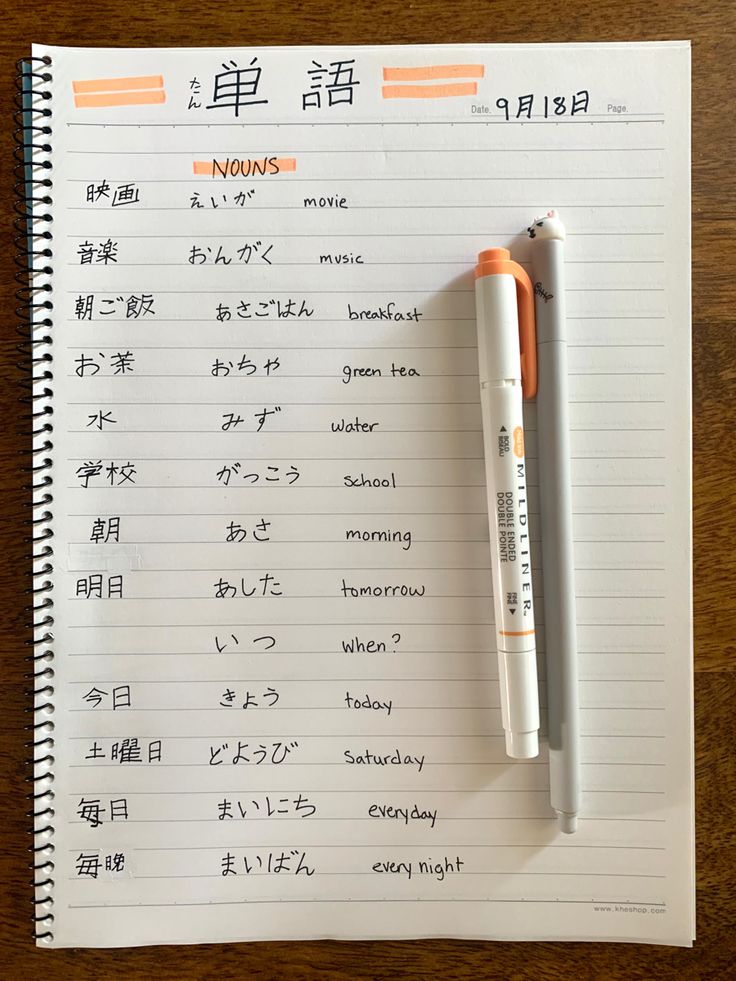 たん 単語
Date. 9月18日 Page.
NOUNS
映画 えいが movie
音楽 おんがく music
朝ご飯 あさごはん breakfast
お茶 おちゃ green tea
水 みず water
学校 がっこう school
朝 あさ morning
明日 あした tomorrow
いつ when?
今日 きょう today
土曜日 どようび Saturday
毎日 まいにち everyday
毎晩 まいばん every night
www.kheshop.com
BOLD
BISEAU
MILDLINER
DOUBLE ENDED
DOUBLE POINTE
FINE
FINE